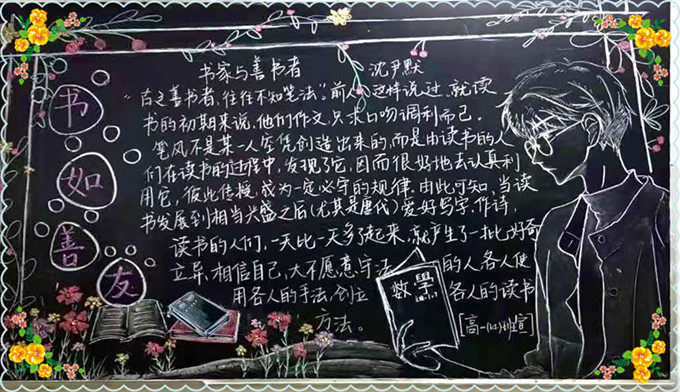 书如善友
书家与善书者 沈尹默
“古之善书者,往往不知笔法”。前人这样说过,就读
书的初期来说,他们作文,只求口吻调利而已。
笔风不是某一人凭空创造出来的,而是由读书的人
们在读书的过程中,发现了它,因而很好地去认真利
用它,彼此传授,成为一定必守的规律。由此可知,当读
书发展到相当兴盛之后(尤其是唐代)爱好写字、作诗,
读书的人们,一天比一天多了起来,就产生了一批好奇
立异、相信自己,大不愿意守法 的人各人使
用各人的手法,创立 各人的读书
方法。
数學
[高一(14)班宣]